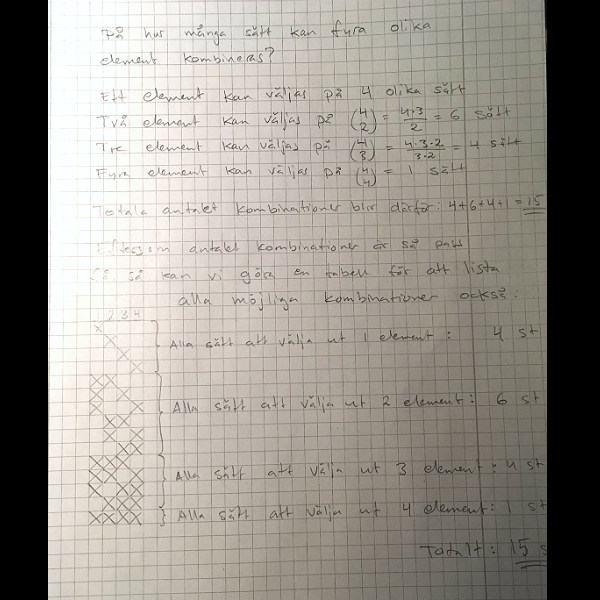 På hur många sätt kan fyra olika
element kombineras?
Ett element kan väljas på 4 olika sätt
Två element kan väljas på (4 2) = 4·3/2 = 6 sätt
Tre element kan väljas på (4 3) = 4·3·2/3·2 = 4 sätt
Fyra element kan väljas på (4 4) = 1 sätt
Totala antalet kombinationer blir därför: 4+6+4+1=15
Eftersom antalet kombinationer är så pass
få, så kan vi göra en tabell för att lista
alla möjliga kombinationer också.
2 3 4
Alla sätt att välja ut 1 element: 4 st
Alla sätt att välja ut 2 element: 6 st
Alla sätt att välja ut 3 element: 4 st
Alla sätt att välja ut 4 element: 1 st
Totalt: 15 s